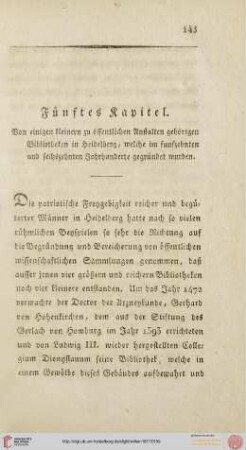 143
Fünftes Kapitel.
Von einigen kleinern zu öffentlichen Anstalten gehörigen
Bibliotheken in Heidelberg, welche im funfzehnten
und sechszehnten Jahrhunderte gegründet wurden.
Die patriotische Freygebigkeit reicher und begü-
terter Männer in Heidelberg hatte nach so vielen
rühmlichen Beyspielen so sehr die Richtung auf
die Begründung und Bereicherung von öffentlichen
wissenschaftlichen Sammlungen genommen, daß
ausser jenen vier größern und reichern Bibliotheken
noch vier kleinere entstanden. Um das Jahr 1472
vermachte der Doctor der Arzneykunde, Gerhard
von Hohenkirchen, dem aus der Stiftung des
Gerlach von Homburg im Jahr 1393 errichteten
und von Ludwig III. wieder hergestellten Colle-
gium Dionysianum seine Bibliothek, welche in
einem Gewölbe dieses Gebäudes aufbewahrt und
UNIVERSITÄTS-
BIBLIOTHEK
HEIDELBERG